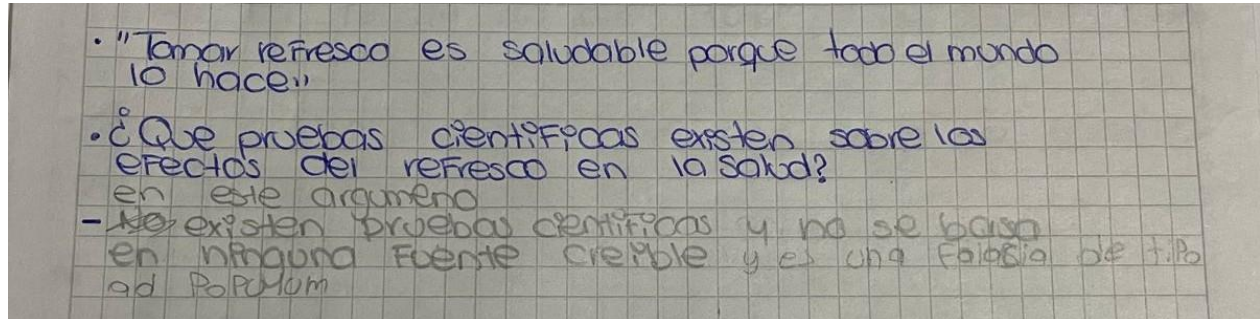 • "Tomar refresco es saludable porque todo el mundo
lo hace"
• ¿Que pruebas científicas existen sobre los
efectos del refresco en la salud?
en este argumeno
- No existen pruebas científicas y no se basa
en ninguna fuente creible y es una falasia de tipo
ad Populum